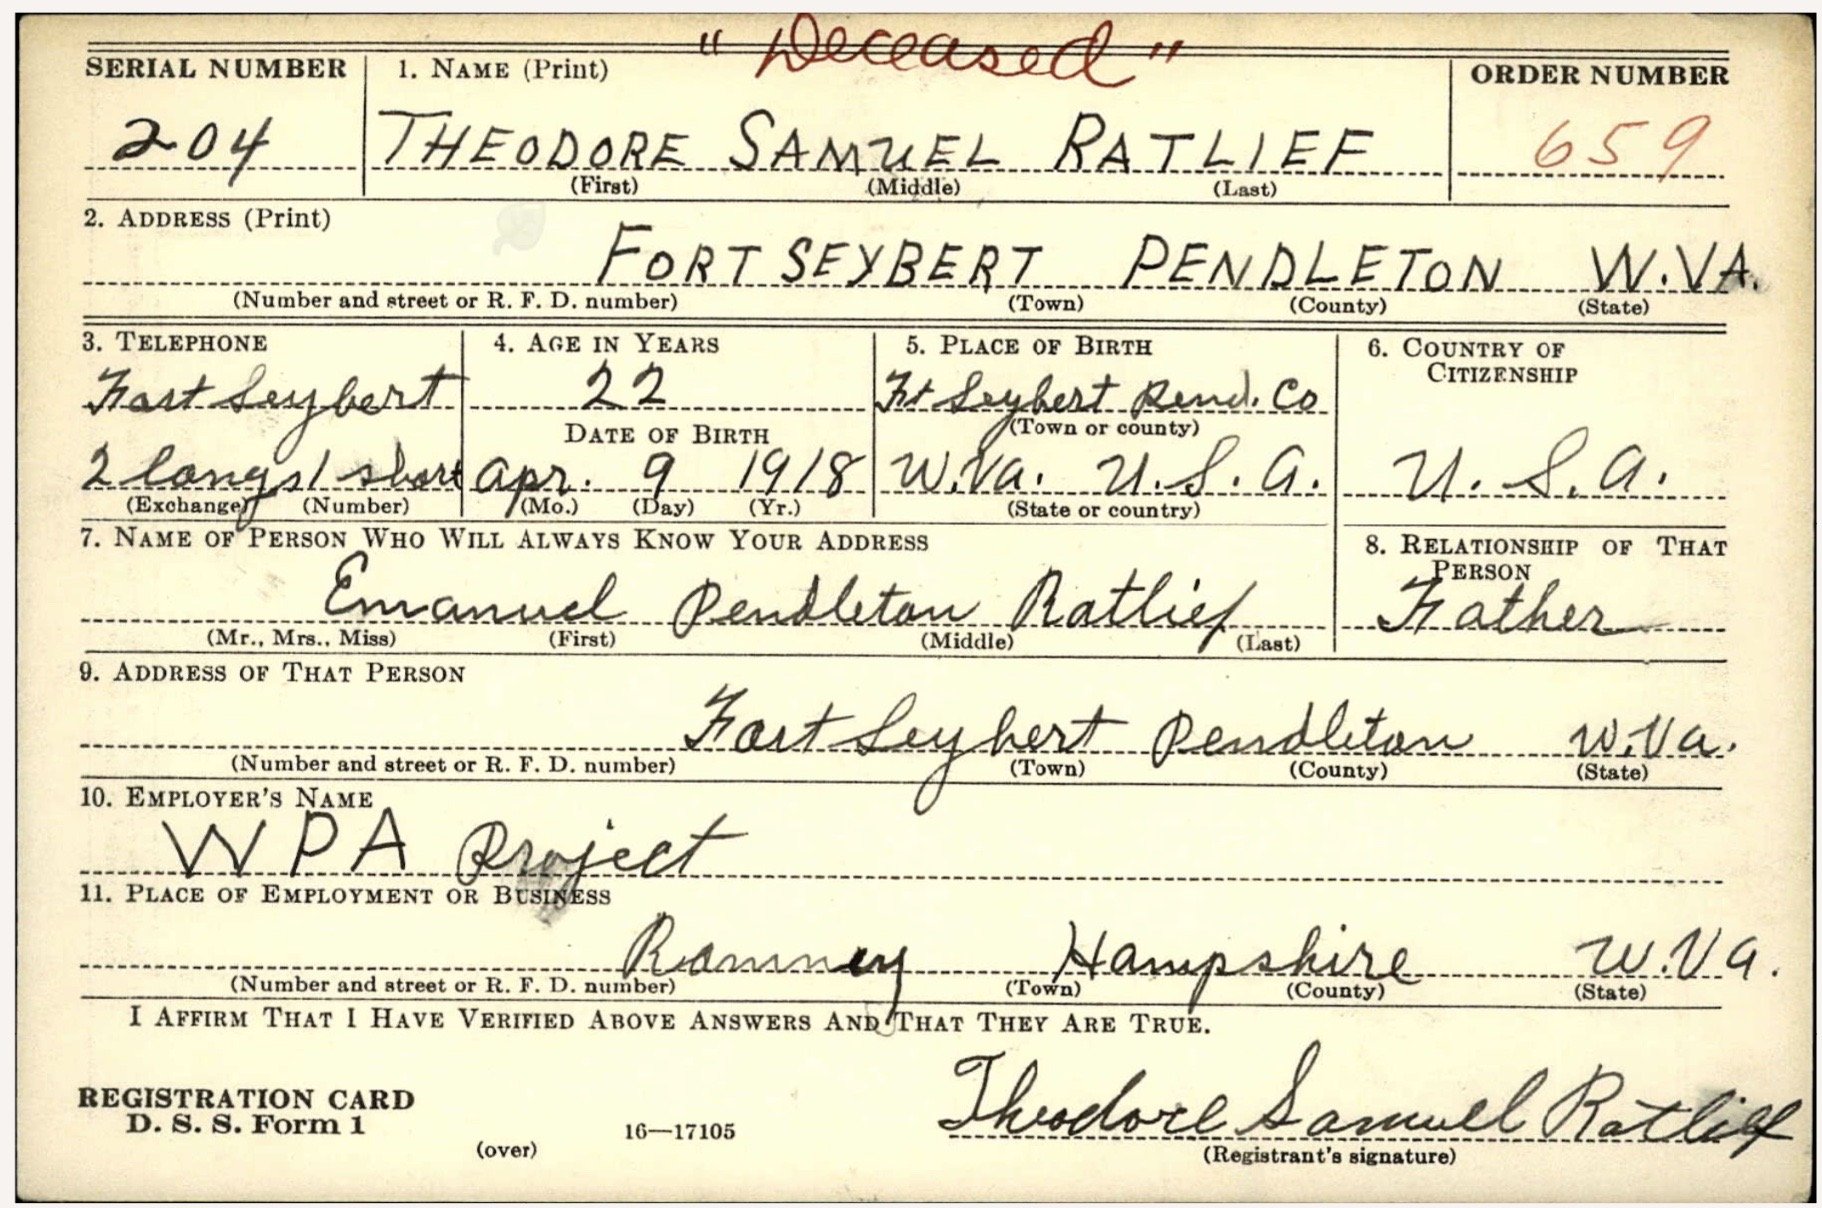 " Deceased "
SERIAL NUMBER 1. NAME (Print) ORDER NUMBER
204 THEODORE SAMUEL RATLIEF 659
(First) (Middle) (Last)
2. ADDRESS (Print)
FORT SEYBERT PENDLETON W.VA.
(Number and street or R. F. D. number) (Town) (County) (State)
3. TELEPHONE 4. AGE IN YEARS 5. PLACE OF BIRTH 6. COUNTRY OF
CITIZENSHIP
Fort Seybert 22 Ft Seybert Pend. Co
DATE OF BIRTH (Town or county)
2 longs 1 short Apr. 9 1918 W.Va. U.S.A. U.S.A.
(Exchange) (Number) (Mo.) (Day) (Yr.) (State or country)
7. NAME OF PERSON WHO WILL ALWAYS KNOW YOUR ADDRESS 8. RELATIONSHIP OF THAT
PERSON
Emanuel Pendleton Ratlief Father
(Mr., Mrs., Miss) (First) (Middle) (Last)
9. ADDRESS OF THAT PERSON
Fort Seybert Pendleton W.Va.
(Number and street or R. F. D. number) (Town) (County) (State)
10. EMPLOYER'S NAME
WPA Project
11. PLACE OF EMPLOYMENT OR BUSINESS
Romney Hampshire W.Va.
(Number and street or R. F. D. number) (Town) (County) (State)
I AFFIRM THAT I HAVE VERIFIED ABOVE ANSWERS AND THAT THEY ARE TRUE.
Theodore Samuel Ratlief
REGISTRATION CARD
D. S. S. Form 1
(over) 16—17105 (Registrant's signature)